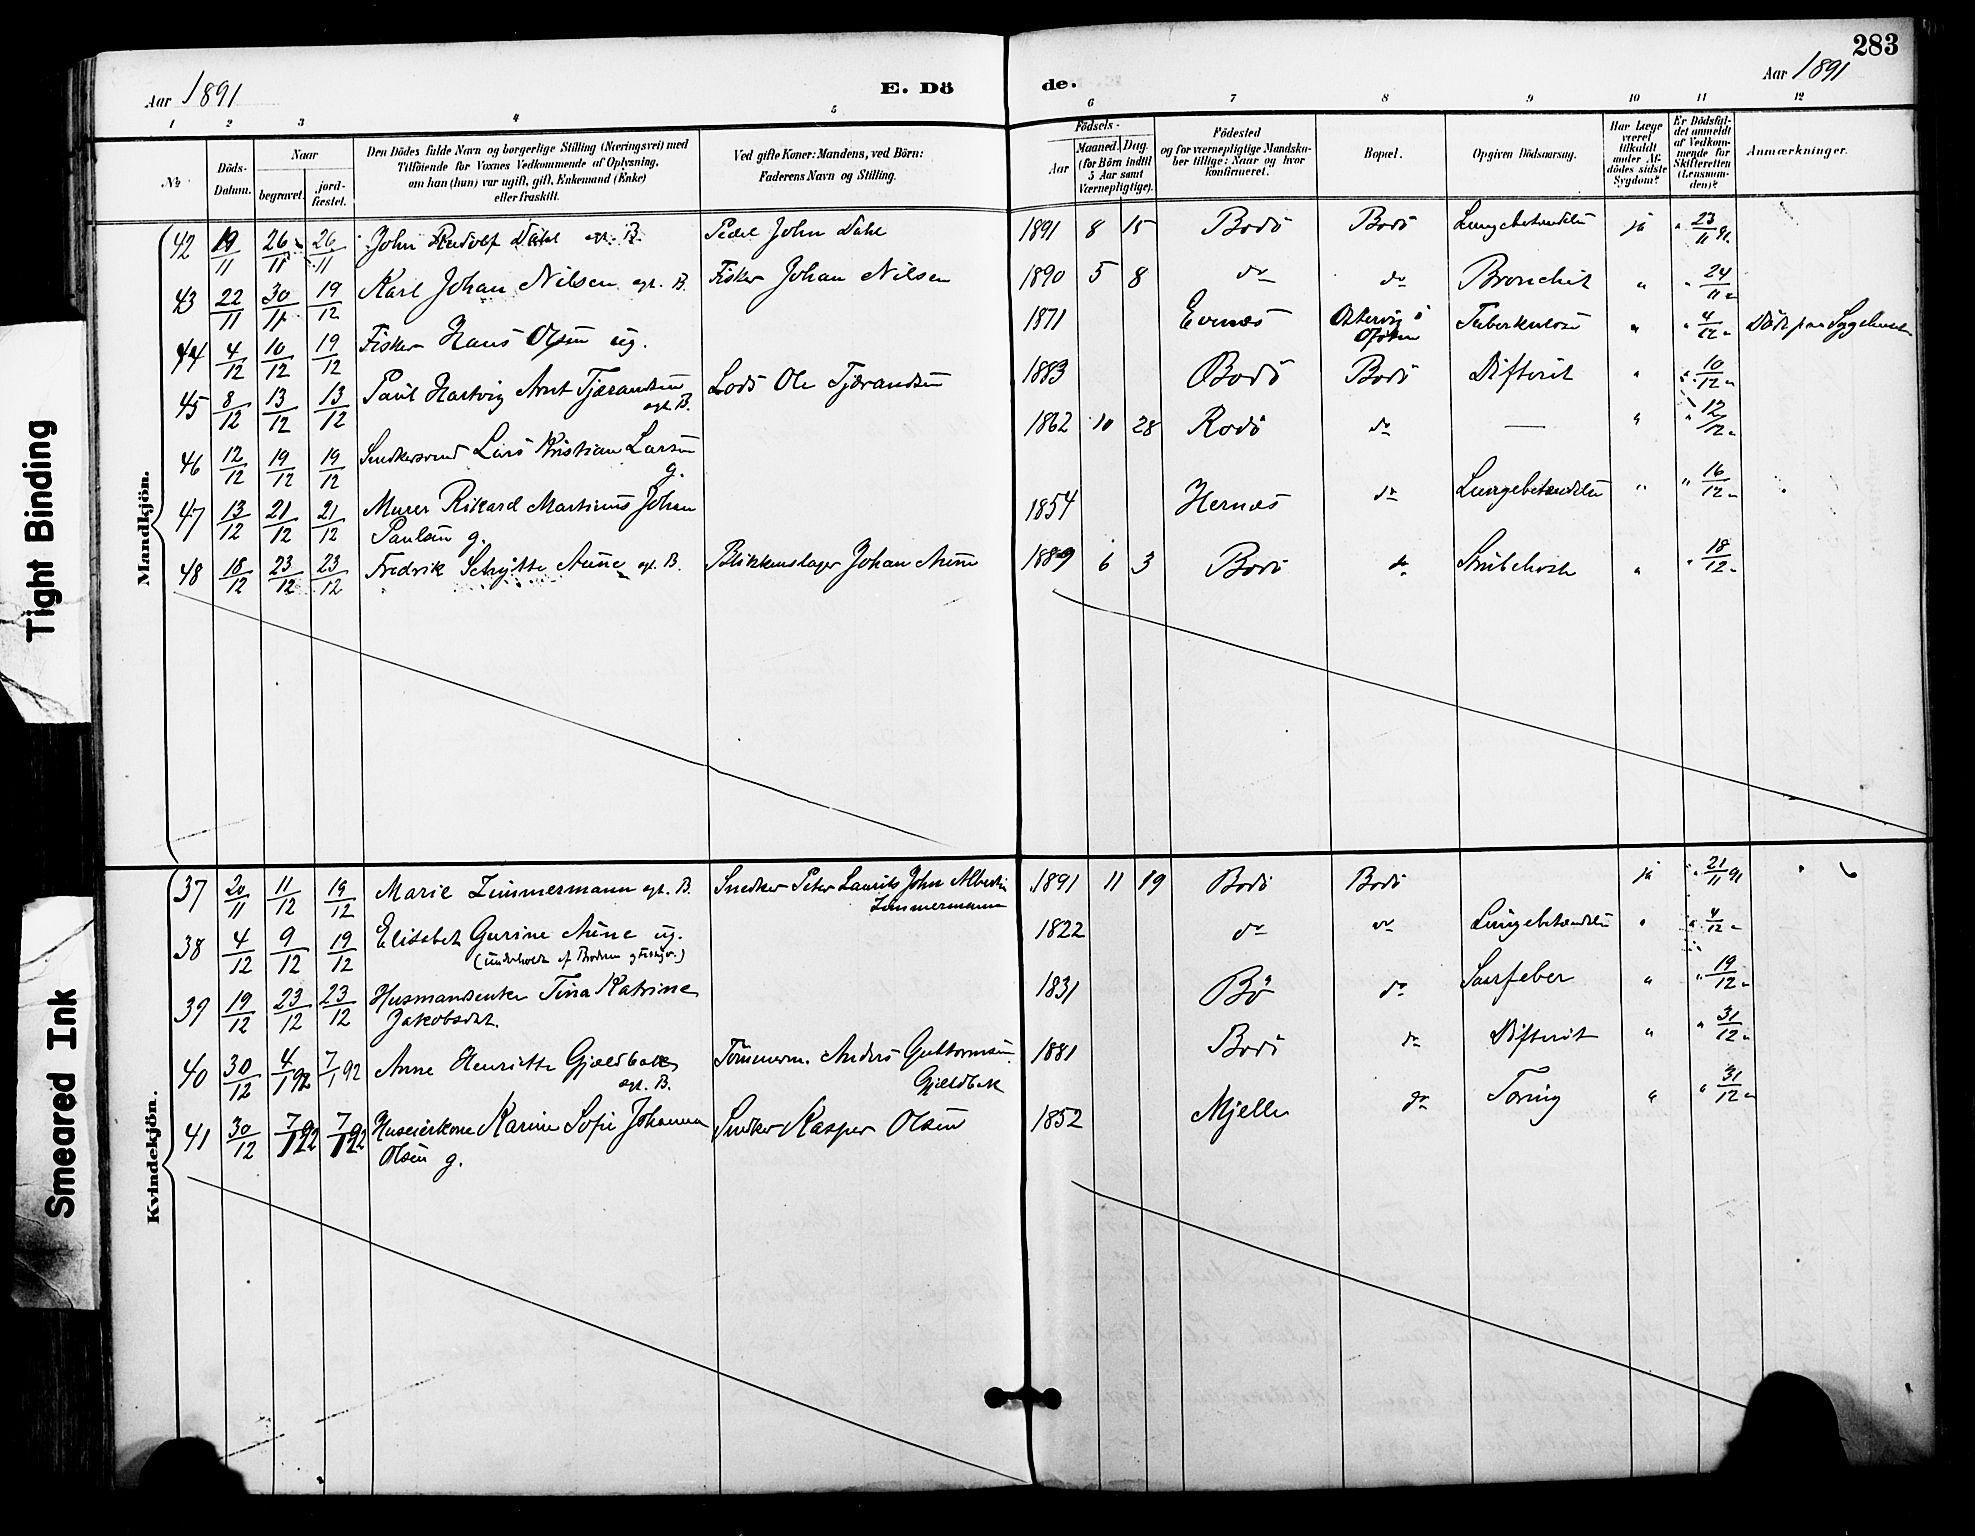 283
Aar 1891
E. Dö
de.
Aar 1891
1 2 3 4 5 6 7 8 9 10 11 12
№
Döds-Datum.
Naar
begravet.
jordfæstet.
Den Dödes fulde Navn og borgerlige Stilling (Næringsvei) med
Tilföiende for Voxnes Vedkommende af Oplysning,
om han (hun) var ugift, gift, Enkemand (Enke)
eller fraskilt.
Ved gifte Koner: Mandens, ved Börn:
Faderens Navn og Stilling.
Födsels-
Aar
Maaned. Dag.
(for Börn indtil
5 Aar samt
Værnepligtige).
Födested
og for værnepligtige Mandskaber tillige: Naar og hvor
konfirmeret.
Bopæl.
Opgiven Dödsaarsag.
Har Læge
været
tilkaldt
under Afdödes sidste
Sygdom?
Er Dödsfaldet anmeldt
af Vedkommende for
Skifteretten
(Lensmanden)?
Anmærkninger.
Mandkjön.
42 19/11 26/11 26/11 John Rudolf Dahl egt. B. Pedel John Dahl 1891 8 15 Bodö Bodö Lungebetændelse ja " 23/11 91.
43 22/11 30/11 19/12 Karl Johan Nilsen egt. B. Fisker Johan Nilsen 1890 5 8 do do Bronchit " " 24/11 "
44 4/12 10/12 19/12 Fisker Hans Olsen ug. 1871 Evenæs Ofoten Tuberkulose " " 4/12 " Död paa Sygehuset
45 8/12 13/12 13/12 Paul Hartvig Arnt Tjærandsen egt. B. Ole Tjærandsen 1883 Bodö Bodö Difterit " " 10/12 "
46 12/12 19/12 19/12 Snedkersvend Lars Kristian Larsen g. 1862 10 28 Rodö do — " " 12/12 "
47 13/12 21/12 21/12 Murer Rikard Martinus Johan
Paulsen g. 1854 Hernæs do Lungebetændelse " " 16/12 "
48 18/12 23/12 23/12 Fredrik Schytte Aune egt. B. Blikkenslager Johan Aune 1889 6 3 Bodö do Strubehoste " " 18/12 "
Kvindekjön.
37 20/11 11/12 19/12 Marie Zimmermann egt. B. Snedker Peter Laurits John Albertin
Zimmermann 1891 11 19 Bodö Bodö ja " 21/11 91
38 4/12 9/12 19/12 Elisabet Gurine Aune ug. 1822 do do Lungebetændelse " " 4/12 "
39 19/12 23/12 23/12 Husmandsenke Tina Katrine
Jakobsdat. 1831 Bö do Saarfeber " " 19/12 "
40 30/12 4/1 92 7/1 92 Anne Henriette Gjældbak
egt. B. Tömmerm. Anders Guttormsen
Gjeldbak 1881 Bodö do Difterit " " 31/12 "
41 30/12 7/1 92 7/1 92 Huseierkone Karine Sofie Johanna
Olsen g. Snedker Kasper Olsen 1852 Mjelle do Tæring " " 31/12 "
Tight Binding
Smeared Ink